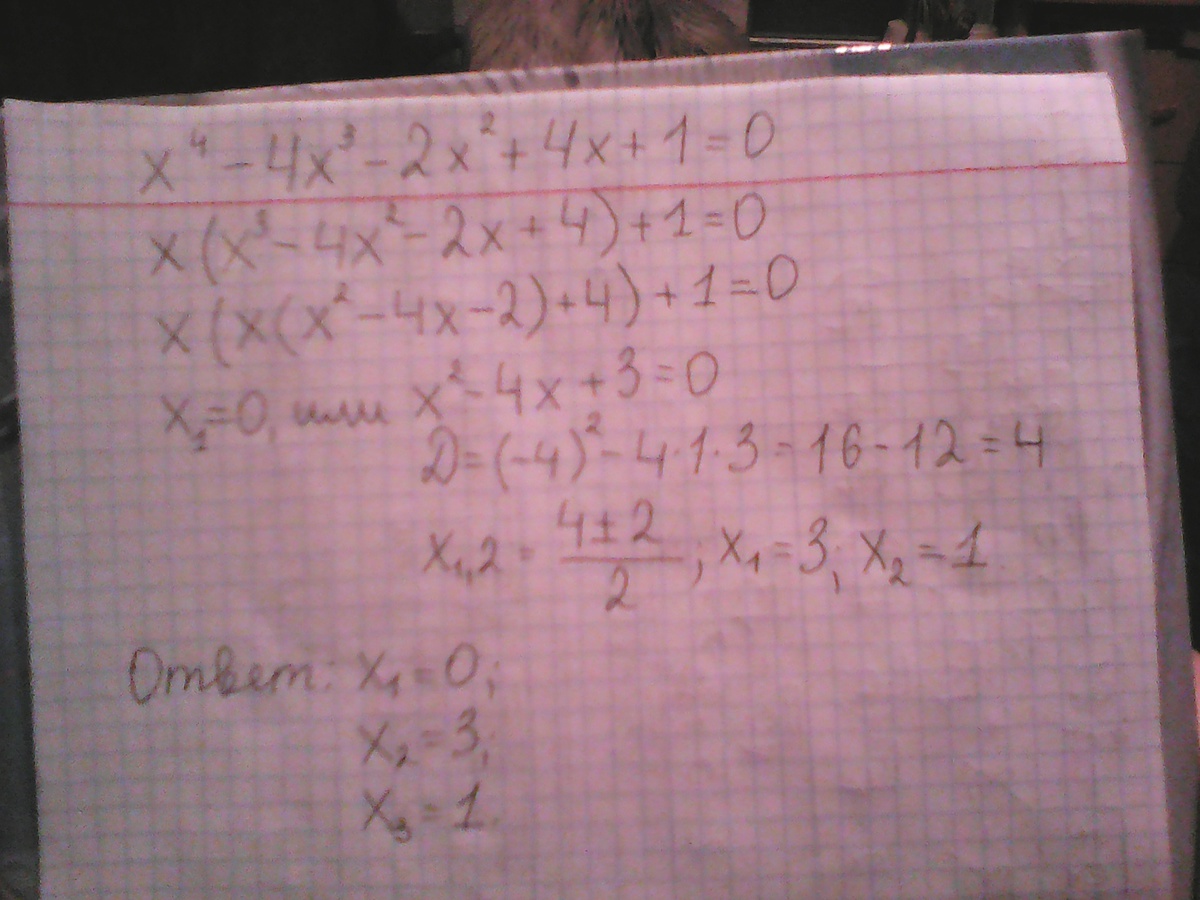 x⁴ - 4x³ - 2x² + 4x + 1 = 0
x(x³ - 4x² - 2x + 4) + 1 = 0
x(x(x² - 4x - 2) + 4) + 1 = 0
x₁ = 0, или x² - 4x + 3 = 0
D = (-4)² - 4·1·3 = 16 - 12 = 4
x₁,₂ = (4 ± 2)/2; x₁ = 3; x₂ = 1
Ответ: x₁ = 0;
x₂ = 3;
x₃ = 1.